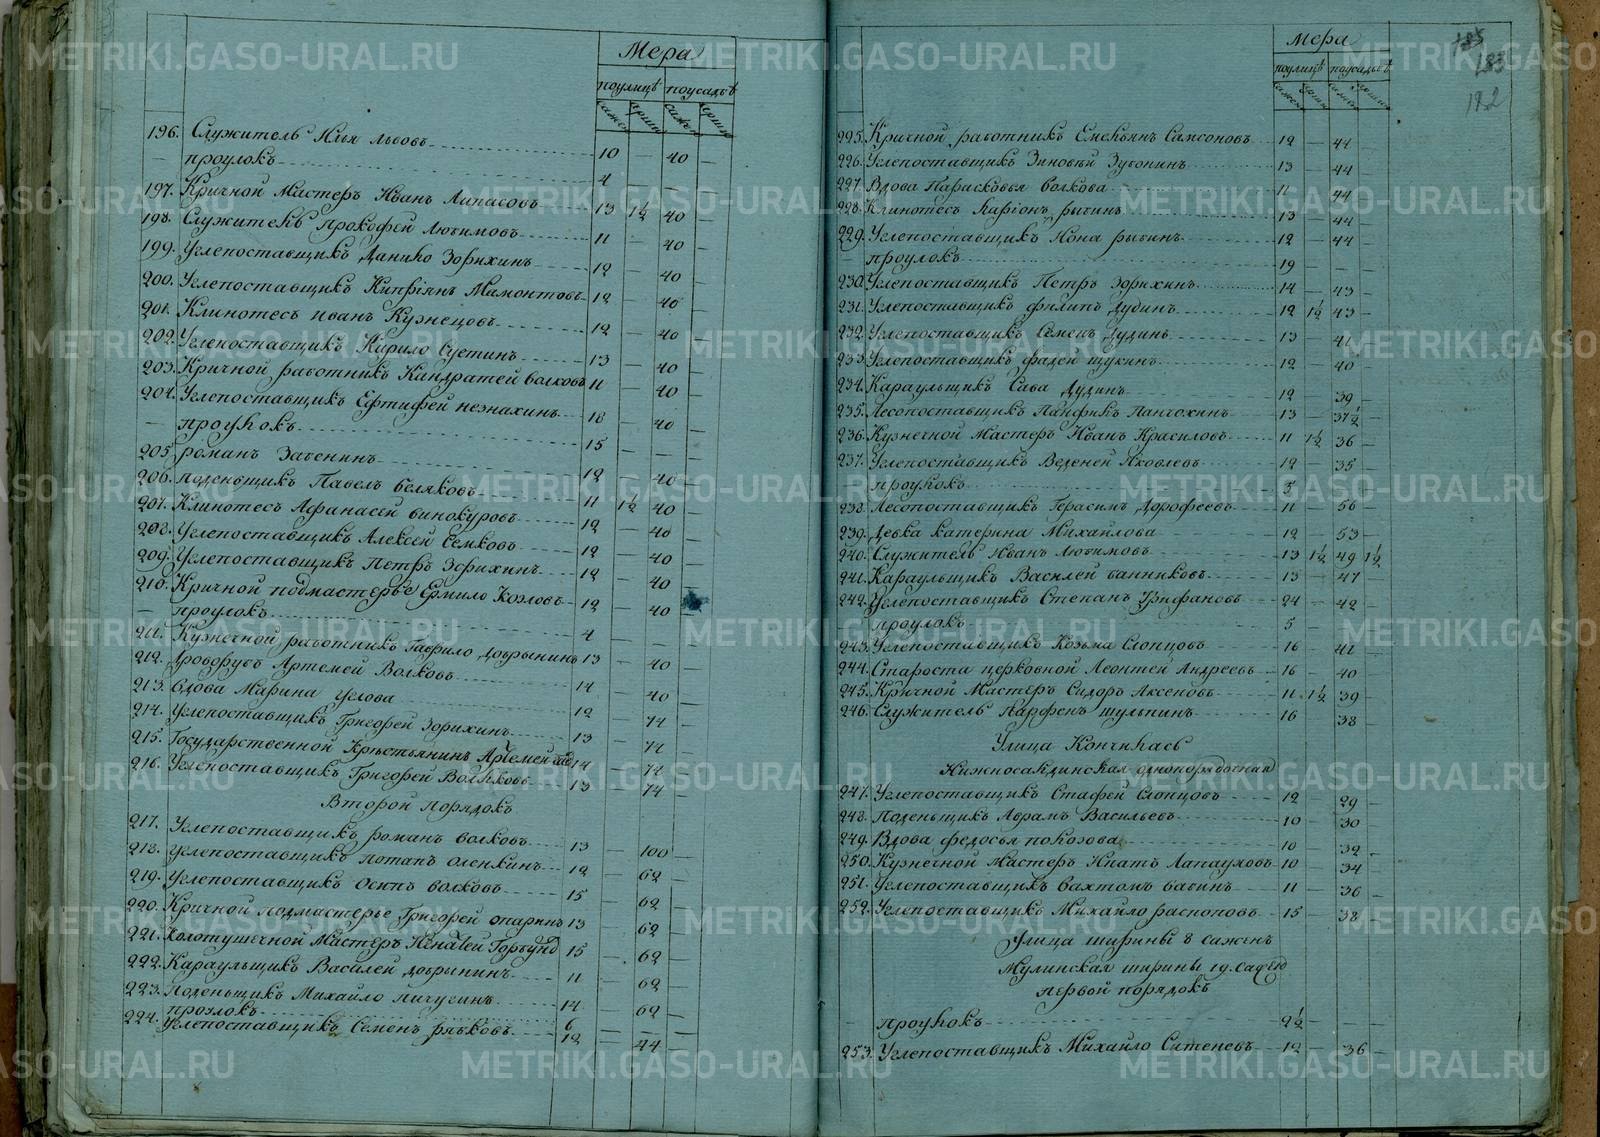 Мера
поулицѣ поусадьбѣ
сажен аршин сажен аршин
196. Служитель Илья Львовъ 10 — 40 —
— проулокъ 4 — — —
197. Кричной Мастеръ Иванъ Липасовъ 13 1½ 40 —
198. Служитель Прокофей Лютимовъ 11 — 40 —
199. Углепоставщикъ Данило Зорихинъ 12 — 40 —
200. Углепоставщикъ Кипріянъ Мамонтовъ 12 — 40 —
201. Клинотесъ иванъ Кузнецовъ 12 — 40 —
202. Углепоставщикъ Кирило Суетинъ 13 — 40 —
203. Кричной работникъ Кандратей волковъ 11 — 40 —
204. Углепоставщикъ Ефтифей незнахинъ 18 — 40 —
— проулокъ 15 — — —
205. романъ Загенинъ 12 — 40 —
206. поденьщикъ Павелъ беляковъ 11 1½ 40 —
207. Клинотесъ Афанасей винокуровъ 12 — 40 —
208. Углепоставщикъ Алексей Семковъ 12 — 40 —
209. Углепоставщикъ Петръ Зорихинъ 12 — 40 —
210. Кричной подмастерье Ермило Козловъ 12 — 40
— проулокъ 4 — — —
211. Кузнечной работникъ Гаврило добрынинъ 13 — 40 —
212. Дроворубъ Артемей Волковъ 14 — 40 —
213. вдова Марина углова 12 — 74 —
214. Углепоставщикъ Григорей Зорихинъ 13 — 74 —
215. Государственной Крестьянинъ Артемей 14 — 74 —
216. Углепоставщикъ Григорей Волковъ 13 — 74 —
Второй порядокъ
217. Углепоставщикъ романъ волковъ 13 — 100 —
218. Углепоставщикъ потапъ оленкинъ 12 — 62 —
219. Углепоставщикъ осипъ волковъ 15 — 62 —
220. Кричной подмастерье Григорей опаринъ 13 — 62 —
221. Колотушечной Мастеръ Игнатей 15 — 62 —
222. Караульщикъ Василей добрынинъ 11 — 62 —
223. Поденьщикъ Михайло пичугинъ 14 — 62 —
проулокъ 6 — — —
224. Углепоставщикъ Семенъ рябковъ 12 — 44 —
185
183
192
Мера
поулицѣ поусадьбѣ
сажен аршин сажен аршин
225. Кричной работникъ Емельянъ Самсоновъ 12 — 44 —
226. Углепоставщикъ Зиновѣй Зубонинъ 13 — 44 —
227. Вдова Парасковья волкова 11 — 44 —
228. Клинотесъ Ларіонъ рыбинъ 13 — 44 —
229. Углепоставщикъ Иона рыбинъ 12 — 44 —
— проулокъ 19 — — —
230. Углепоставщикъ Петръ Зорихинъ 14 — 43 —
231. Углепоставщикъ филипъ дудинъ 12 1½ 43 —
232. Углепоставщикъ Семенъ дудинъ 13 — 41 —
233. Углепоставщикъ фадей щукинъ 12 — 40 —
234. Караульщикъ Сава дудинъ 12 — 39 —
235. Лесопоставщикъ Панфилъ Панчохинъ 13 — 37½ —
236. Кузнечной Мастеръ Иванъ Красиловъ 11 1½ 36 —
237. Углепоставщикъ Веденей Яковлевъ 12 — 35 —
проулокъ 5 — — —
238. Лесопоставщикъ Герасимъ Дорофеевъ 11 — 56 —
239. Девка катерина Михайлова 12 — 53 —
240. Служитель Иванъ Лютимовъ 13 1½ 49 1½
241. Караульщикъ Василей банниковъ 13 — 47 —
242. Углепоставщикъ Степанъ 24 — 42 —
проулокъ 5 — — —
243. Углепоставщикъ Козьма Слопцовъ 16 — 41 —
244. Староста церковной Леонтей Андреевъ 16 — 40 —
245. Кричной Мастеръ Сидоръ Аксеновъ 11 1½ 39 —
246. Служитель Парфенъ шульпинъ 16 — 38 —
Улица
Нижносалдинская однопорядочная
247. Углепоставщикъ Стафей Слопцовъ 12 — 29 —
248. Поденьщикъ Аврамъ Васильевъ 10 — 30 —
249. Вдова федосья полозова 10 — 32 —
250. Кузнечной Мастеръ Ипатъ Лапауховъ 10 — 34 —
251. Углепоставщикъ вахтомъ бабинъ 11 — 36 —
252. Углепоставщикъ Михайло распоповъ 15 — 38 —
Улица ширины 8 саженъ
Мулинская ширины
первой порядокъ
— проулокъ 2½ — — —
253. Углепоставщикъ Михайло Ситеневъ 12 — 36 —
METRIKI.GASO-URAL.RU